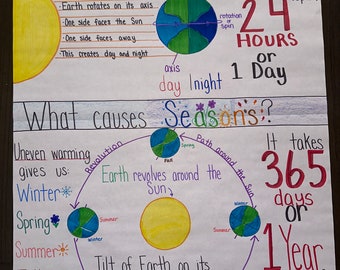 Earth rotates on its axis
One side faces the Sun
One side faces away
This creates day and night
rotation
or
spin
24
HOURS
or
1 Day
axis
day | night
What causes Seasons?
Uneven warming
gives us:
Winter
Spring
Summer
Revolution
Path around the Sun
Spring
Fall
Earth revolves around the
Sun
Summer
Winter
Summer
Winter
It takes
365
days
or
1 Year
Tilt of Earth on its